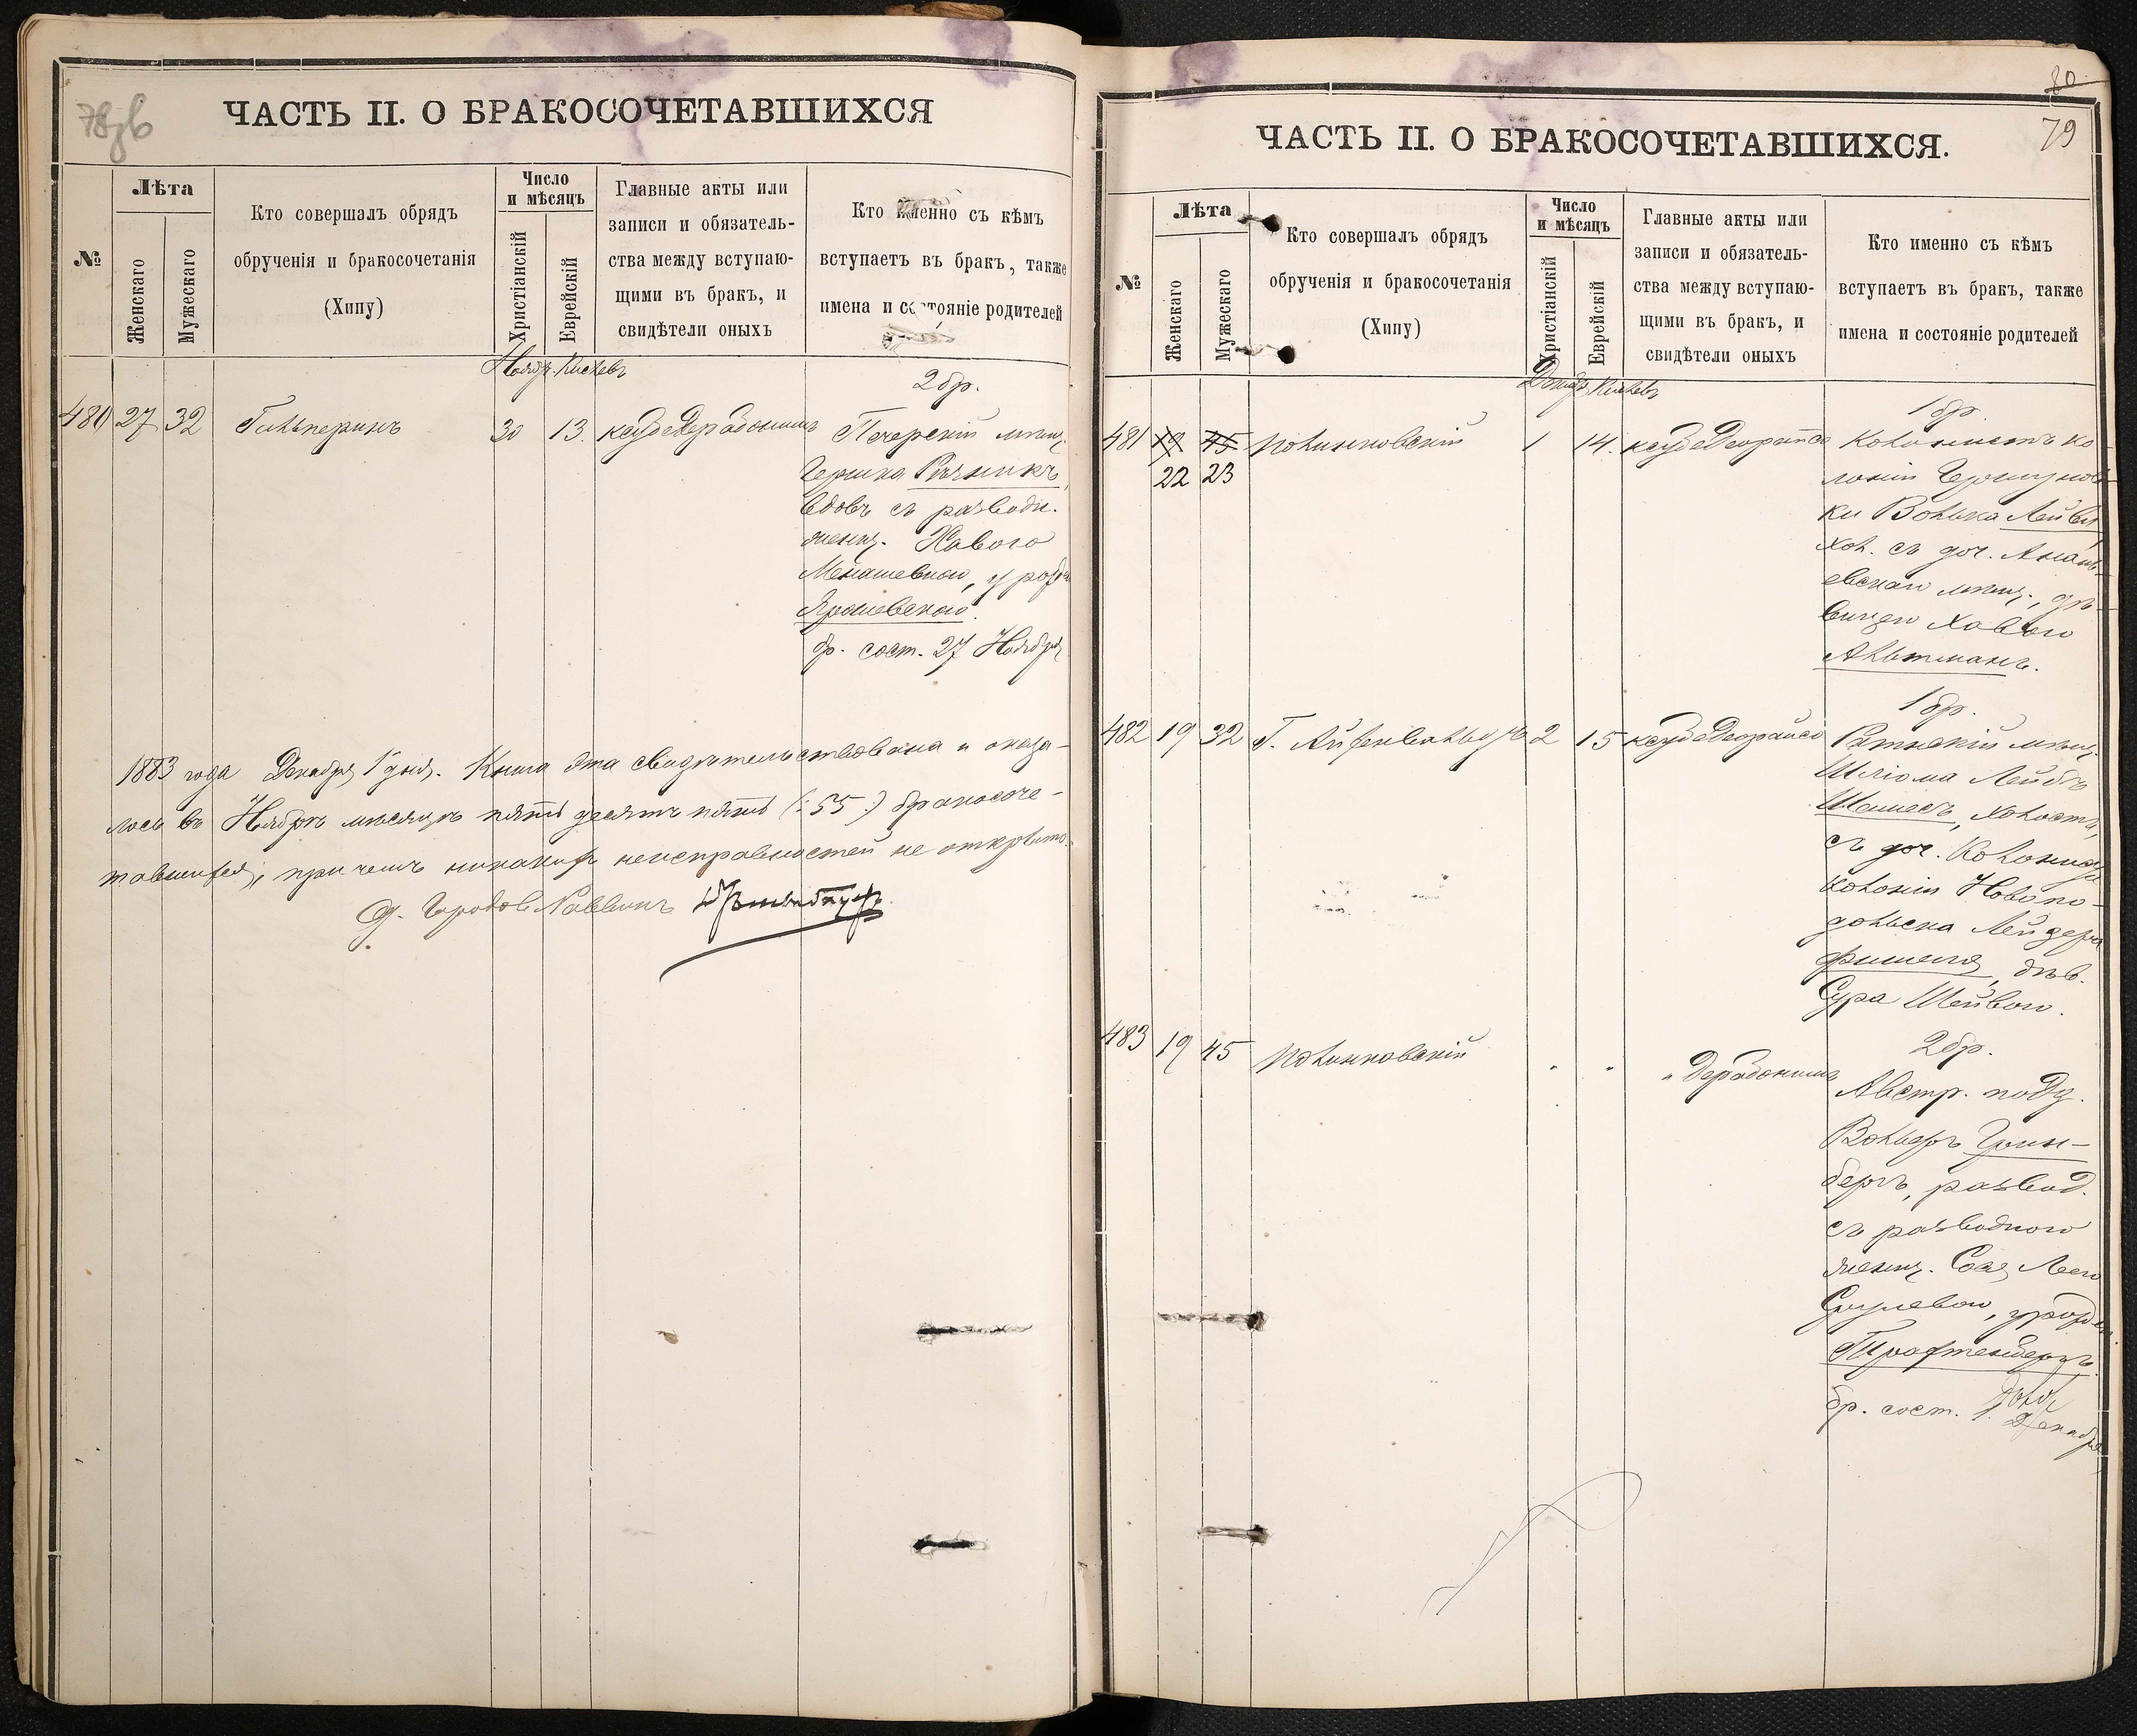 78зв
ЧАСТЬ II. О БРАКОСОЧЕТАВШИХСЯ
№
Лѣта
Женскаго
Мужескаго
Кто совершалъ обрядъ
обрученія и бракосочетанія
(Хипу)
Число
и мѣсяцъ
Христіанскій
Еврейскій
Главные акты или
записи и обязатель-
ства между вступаю-
щими въ бракъ, и
свидѣтели оныхъ
Кто именно съ кѣмъ
вступаетъ въ бракъ, также
имена и состояніе родителей
Ноябр. Кислевъ
2 бр.
480 27 32 Гальперинъ 30 13.
Печерскій мѣщ.
Гершка Рѣзникъ,
вдовъ съ разводн.
женщ. Хавою
Менашевною, урожд.
Ярошевскою.
бр. сост. 27 Ноября
1883 года Декабря 1 дня. Книга эта свидѣтельствована и оказа-
лось въ Ноябрѣ мѣсяцѣ пятьдесятъ пять (: 55 :) бракосоче-
тавшихся, при чемъ никакихъ неисправностей не открыто.
Городов. Раввинъ
80
79
ЧАСТЬ II. О БРАКОСОЧЕТАВШИХСЯ.
№
Лѣта
Женскаго
Мужескаго
Кто совершалъ обрядъ
обрученія и бракосочетанія
(Хипу)
Число
и мѣсяцъ
Христіанскій
Еврейскій
Главные акты или
записи и обязатель-
ства между вступаю-
щими въ бракъ, и
свидѣтели оныхъ
Кто именно съ кѣмъ
вступаетъ въ бракъ, также
имена и состояніе родителей
Декабр. Кислевъ
1 бр.
481 19 45 Полинковскій 1 14. Колонистъ ко-
22 23
лоніи
ки Волька Лейви
хол. съ доч. Анань-
евскаго мѣщ., дѣ-
вицею Хавою
Альтманъ.
1 бр.
482 19 32 Г. Айзенвальдъ 2 15
Ратнскій мѣщ.
Шліома Лейбъ
Шамесъ, холостъ,
съ доч. Колониста
колоніи Новопо-
дольска Лейзера
Фишеля, дѣв.
Сура Шейвою.
2 бр.
483 19 45 Полинковскій " "
Австр. подд.
Вольфъ Грин-
бергъ, развод.
съ разводною
женщ. Соея Леею
Срулевою, урожден.
бр. сост. 1 Декабря